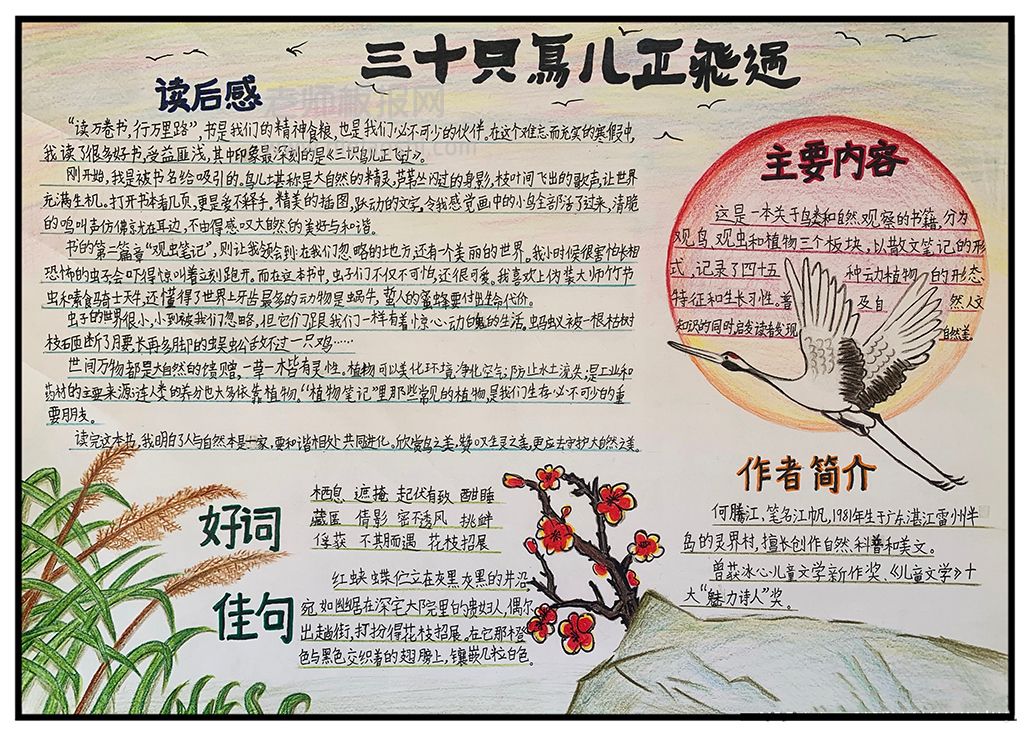 三十只鸟儿正飞过
读后感
“读万卷书，行万里路”，书是我们的精神食粮，也是我们必不可少的伙伴。在这个难忘而充实的寒假中，
我读了很多好书，受益匪浅，其中印象最深刻的是《三十只鸟儿正飞过》。
刚开始，我是被书名给吸引的。鸟儿堪称是大自然的精灵，芦苇丛闪过的身影，枝叶间飞出的歌声，让世界
充满生机。打开书本看几页，更是爱不释手。精美的插图，跃动的文字，令我感觉画中的小鸟全部活了过来，清脆
的鸣叫声仿佛就在耳边，不由得感叹大自然的美好与和谐。
书的第二篇章“观虫笔记”，则让我领会到在我们忽略的地方，还有个美丽的世界。我小时候很害怕长相
恐怖的虫子，会吓得惊叫着立刻跑开。而在这本书中，虫子们不仅不可怕，还很可爱。我喜欢上伪装大师竹节
虫和素食骑士天牛，还懂得了世界上牙齿最多的动物是蜗牛，蜇人的蜜蜂要付出生命代价。
虫子的世界很小，小到被我们忽略，但它们跟我们一样有着惊心动魄的生活。蚂蚁被一根枯树
枝砸断了腰，长再多脚的蜈蚣敌不过一只鸡……
世间万物都是大自然的馈赠，一草一木皆有灵性。植物可以美化环境，净化空气；防止水土流失；是工业和
药材的主要来源；连人类的养分也大多依靠植物。“植物笔记”里那些常见的植物，是我们生存必不可少的重
要朋友。
读完这本书，我明白了人与自然本是一家，要和谐相处，共同进化，欣赏鸟之美，赞叹生灵之美，更应去守护大自然之美。
主要内容
这是一本关于鸟类和自然观察的书籍，分为
观鸟、观虫和植物三个板块，以散文笔记的形
式，记录了四十五种动植物的形态
特征和生长习性。普及自然人文
知识的同时，启发读者发现自然美。
好词
栖息 遮掩 起伏有致 酣睡
藏匿 倩影 密不透风 挑衅
俘获 不期而遇 花枝招展
佳句
红蛱蝶伫立在灰黑灰黑的岸沿，
宛如幽居在深宅大院里的贵妇人，偶尔
出趟街，打扮得花枝招展。在它那橙
色与黑色交织着的翅膀上，镶嵌几粒白色。
作者简介
何腾江，笔名江帆，1981年生于广东湛江雷州半
岛的灵界村，擅长创作自然、科普和美文。
曾获冰心儿童文学新作奖、《儿童文学》十
大“魅力诗人”奖。
老师板报网